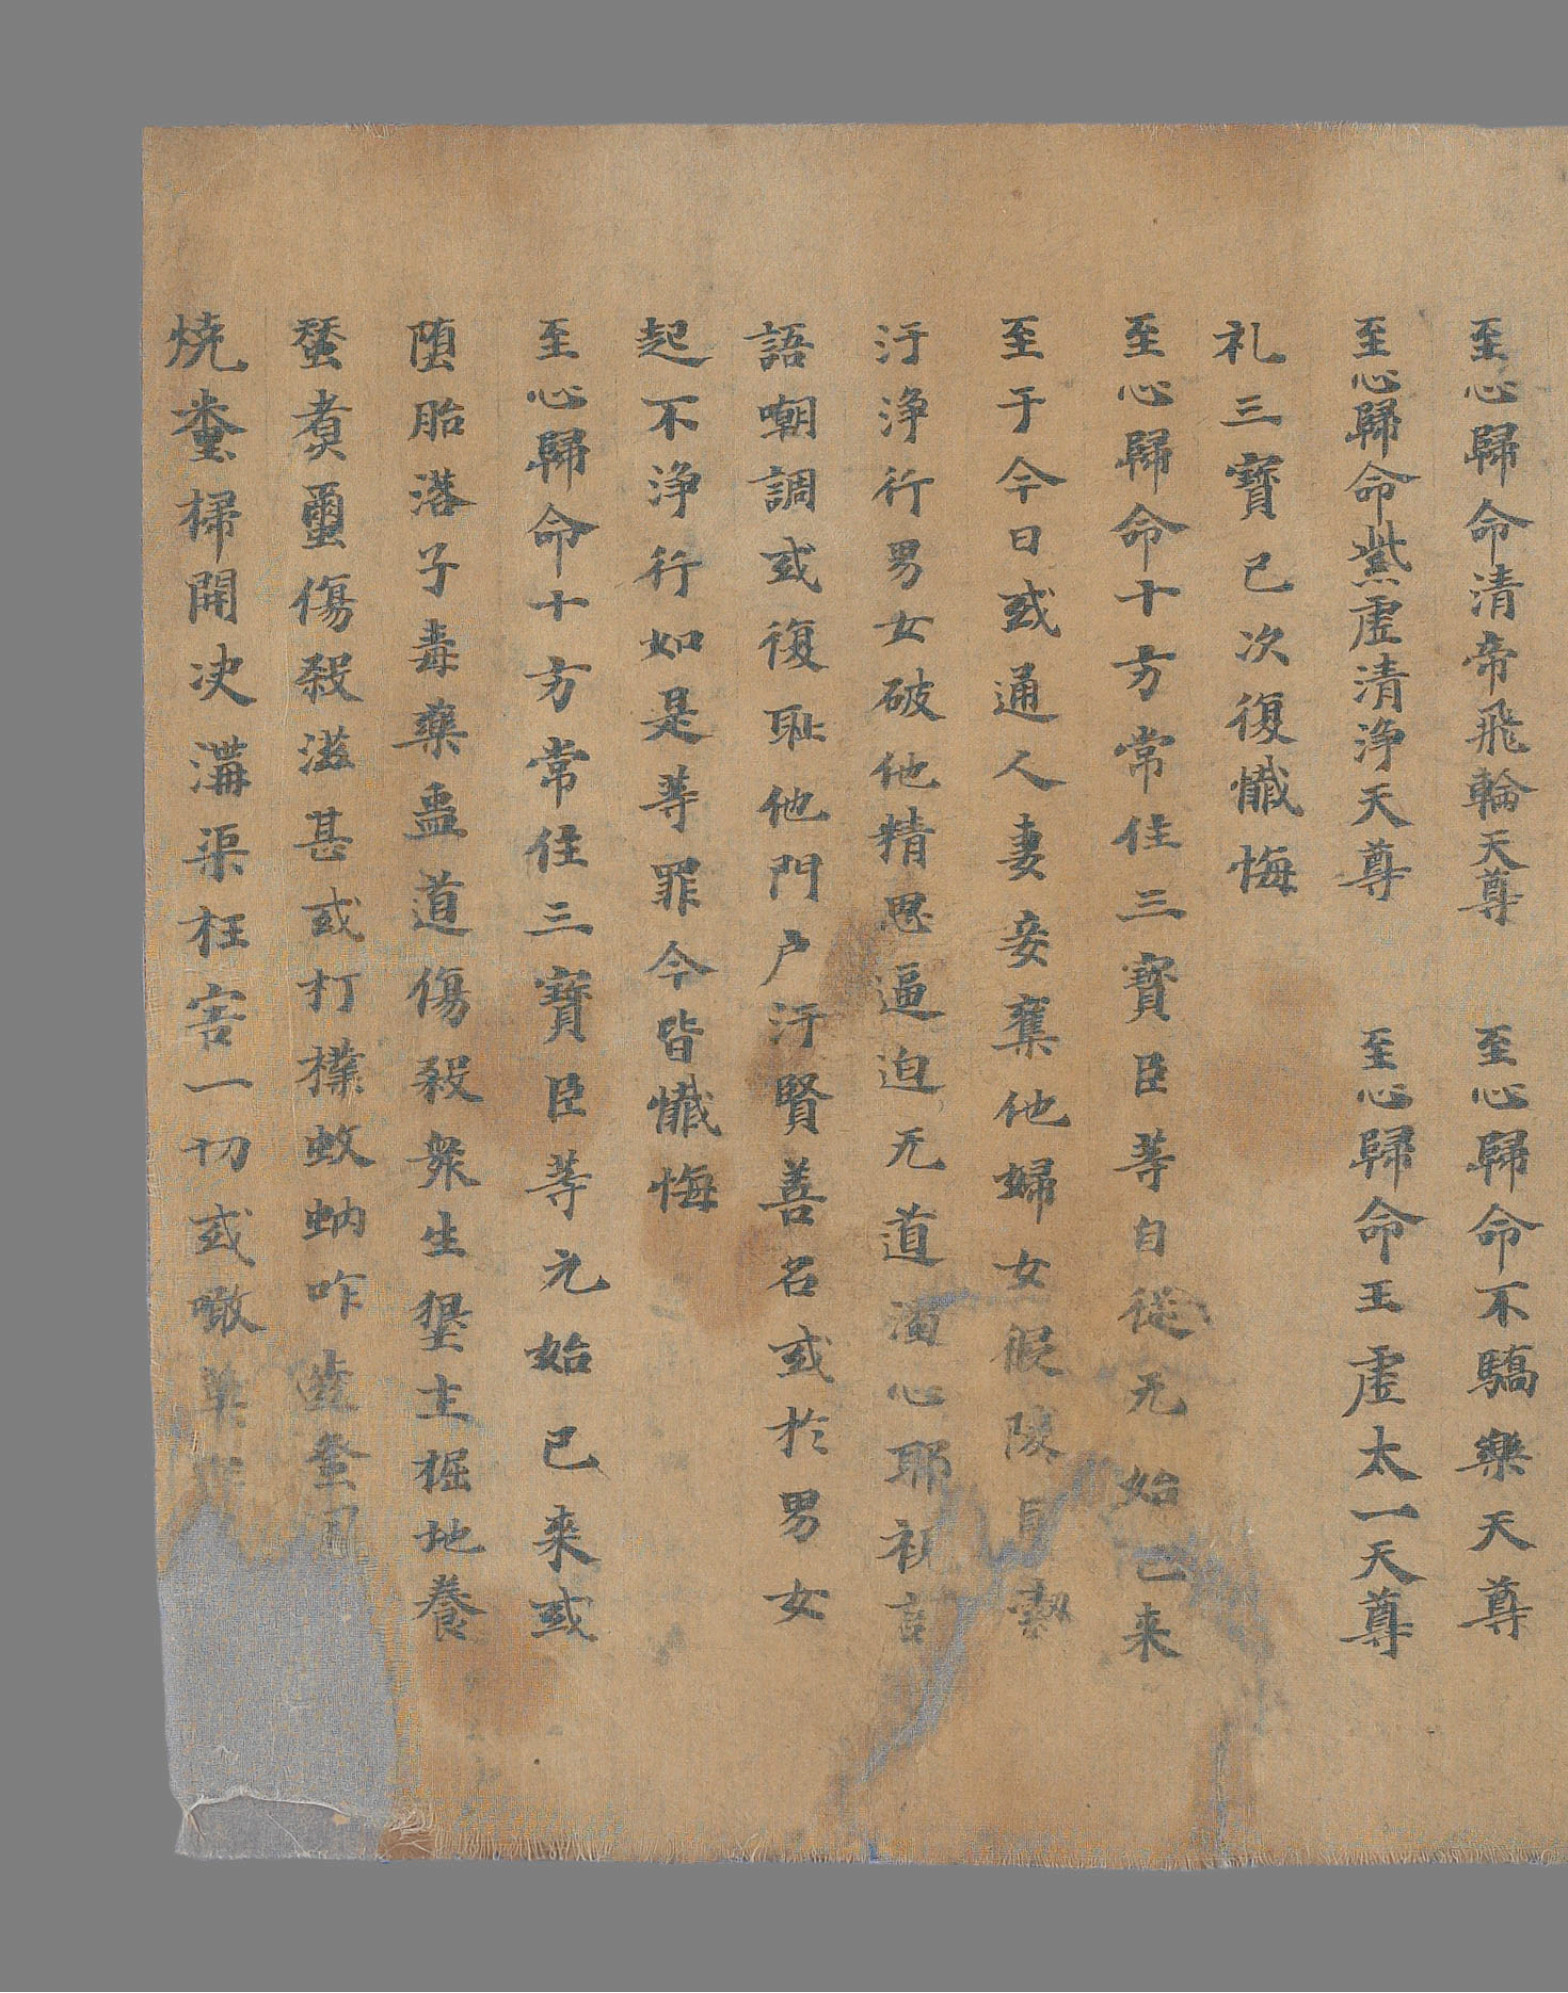 至心歸命清帝飛輪天尊　至心歸命不驕樂天尊
至心歸命紫虛清淨天尊　至心歸命王虛太一天尊
礼三寶已次復懺悔
至心歸命十方常住三寶臣等自從无始已来
至于今日或通人妻妾奪他婦女假陵勢
汙淨行男女破他精思逼迫无道濁心耶視言
語嘲調或復恥他門户汙賢善名或於男女
起不淨行如是等罪今皆懺悔
至心歸命十方常住三寶臣等元始已来或
堕胎落子毒藥蠱道傷殺衆生墾土掘地養
蚕煮蠒傷殺滋甚或打撲蚊蚋咋齧
燒糞掃開决溝渠枉害一切或噉